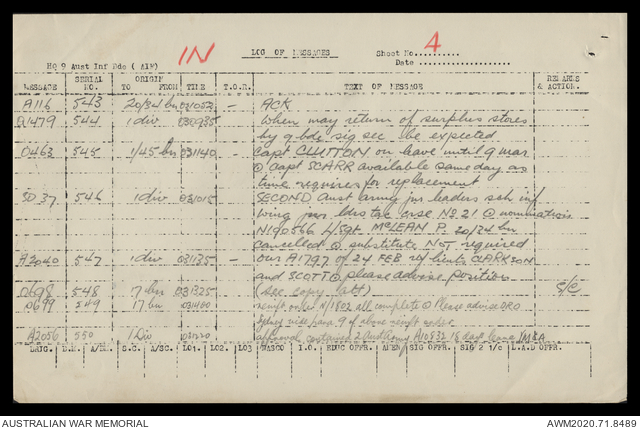 IN
LOG OF MESSAGES
Sheet No. 4
HQ 9 Aust Inf Bde (AIF)
Date
MESSAGE SERIAL NO. ORIGIN TO FROM TIME T.O.R. TEXT OF MESSAGE REMARKS & ACTION.
A116 543 20/34 bn 031052 - ACK
Q1479 544 1 div 030935 - When may return of surplus stores
by 9 bde sig sec be expected
O463 545 1/45 bn 031140 - Capt CLUTTON on leave until 9 mar
@ Capt SCARR available same day as
time requires for replacement
SD 37 546 1 div 031015 SECOND Aust army jnr leaders sch inf
wing jnr ldrs tac crse No. 21 @ nominations
N190566 L/Sgt. McLEAN P. 20/34 bn
cancelled @ substitute NOT required
A2040 547 1 div 031135 our A1797 of 24 FEB ref lieuts CLARKSON
and SCOTT @ please advise position
O698 548 17 bn 031325 (see copy att) S/C
O699 549 17 bn 031400 receipt order N/1802 all complete @ Please advise DRO
Sydney vide para 9 of above receipt order
A2056 550 1 Div approval 2 Aust Army 18 days leave
BRIG. B.M. A/BM. S.C. A/SC. LO1. LO2 LO3 WASCO I.O. EDUC OFFR. AMEN SIG OFFR. SIG 2 i/c L.A.D OFFR.
AUSTRALIAN WAR MEMORIAL
AWM2020.71.8489